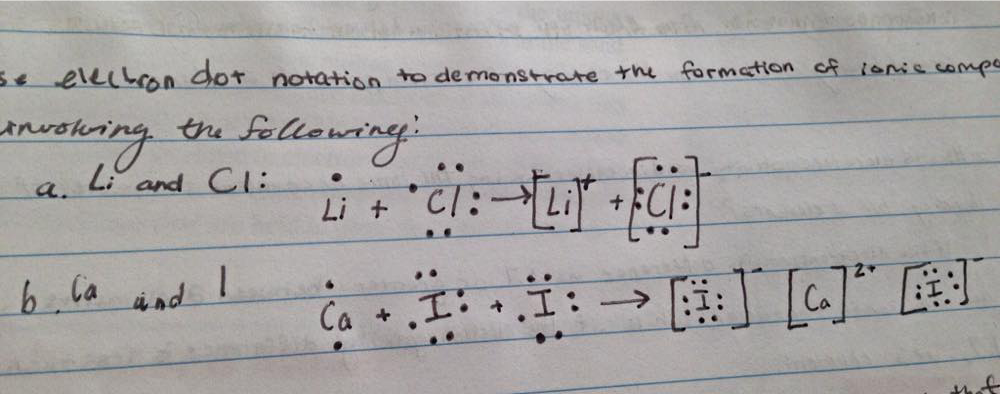 se electron dot notation to demonstrate the formation of ionic compo
involving the following:
a. Li and Cl: Li + Cl: → [Li]⁺ + [:Cl:]⁻
b. Ca and I Ca + .I: + .I: → [:I:]⁻ [Ca]²⁺ [:I:]⁻